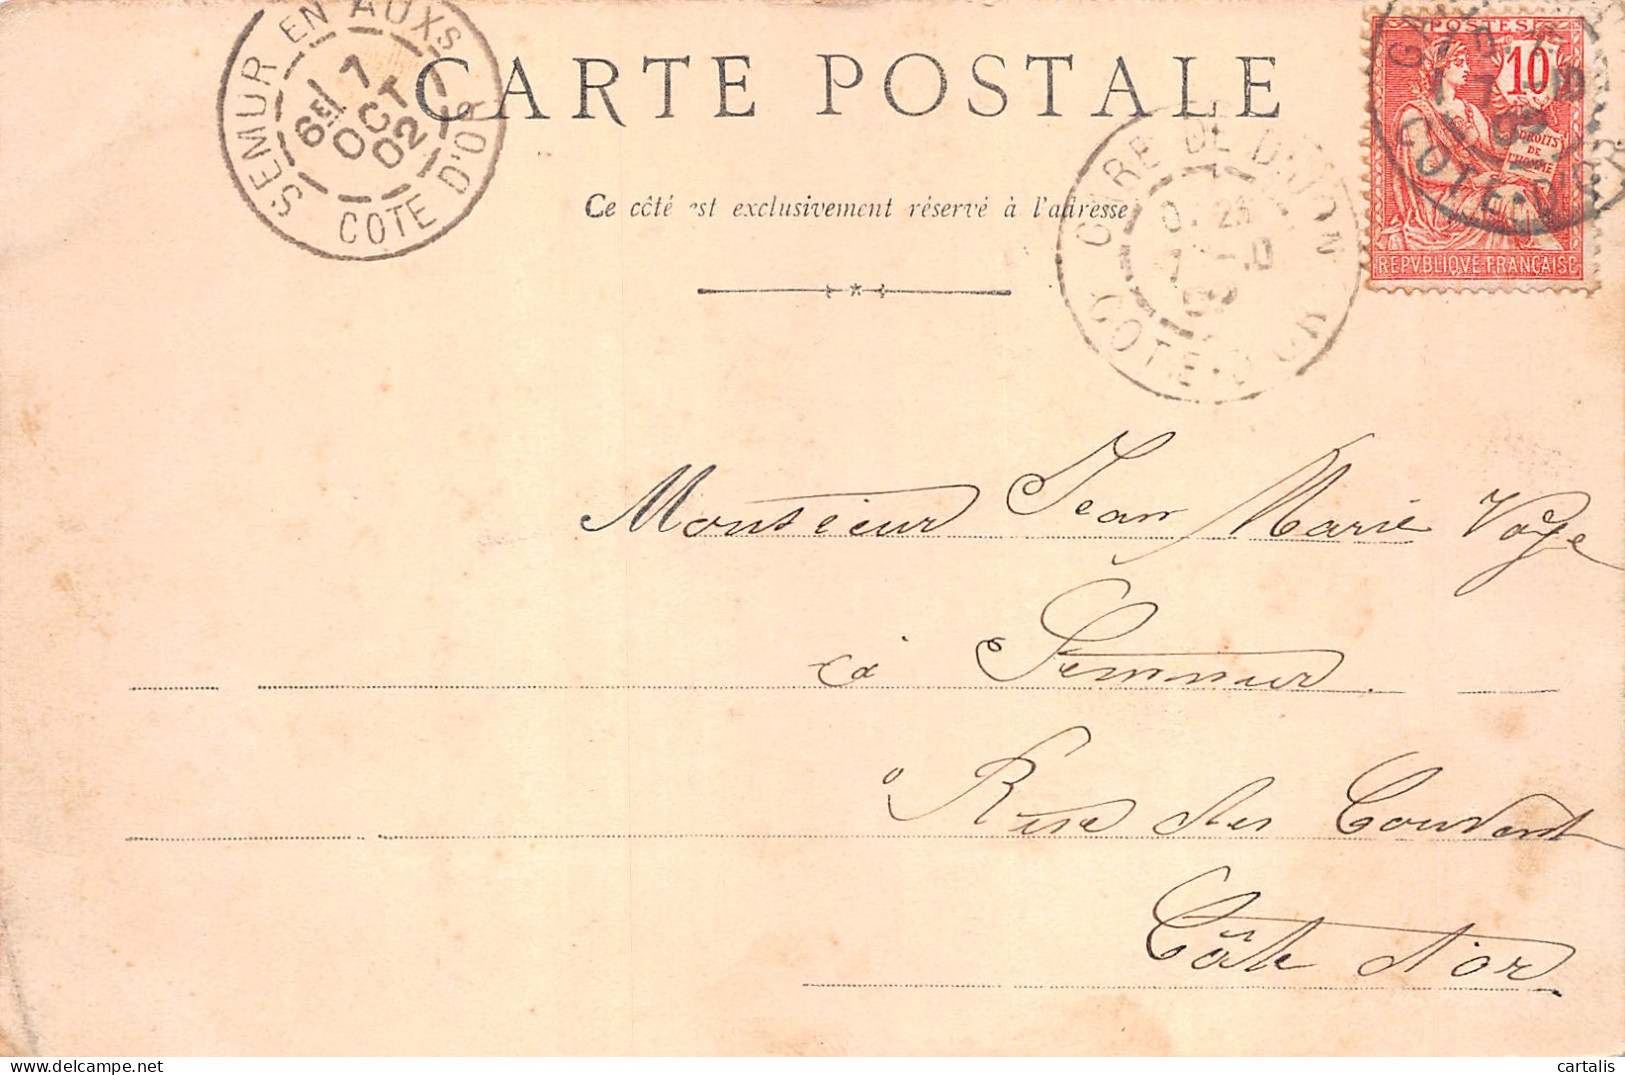 SEMUR EN AUXS
6E 7
OCT
02
COTE D'OR
CARTE POSTALE
POSTES
10
DROITS
DE
L'HOMME
REPVBLIQVE FRANÇAISE
COTE-D'OR
Ce côté est exclusivement réservé à l'adresse
GARE DE DIJON
COTE-D'OR
Monsieur Jean Marie
à Semmur
Rue des Couvent
Côte d'or
cartalis